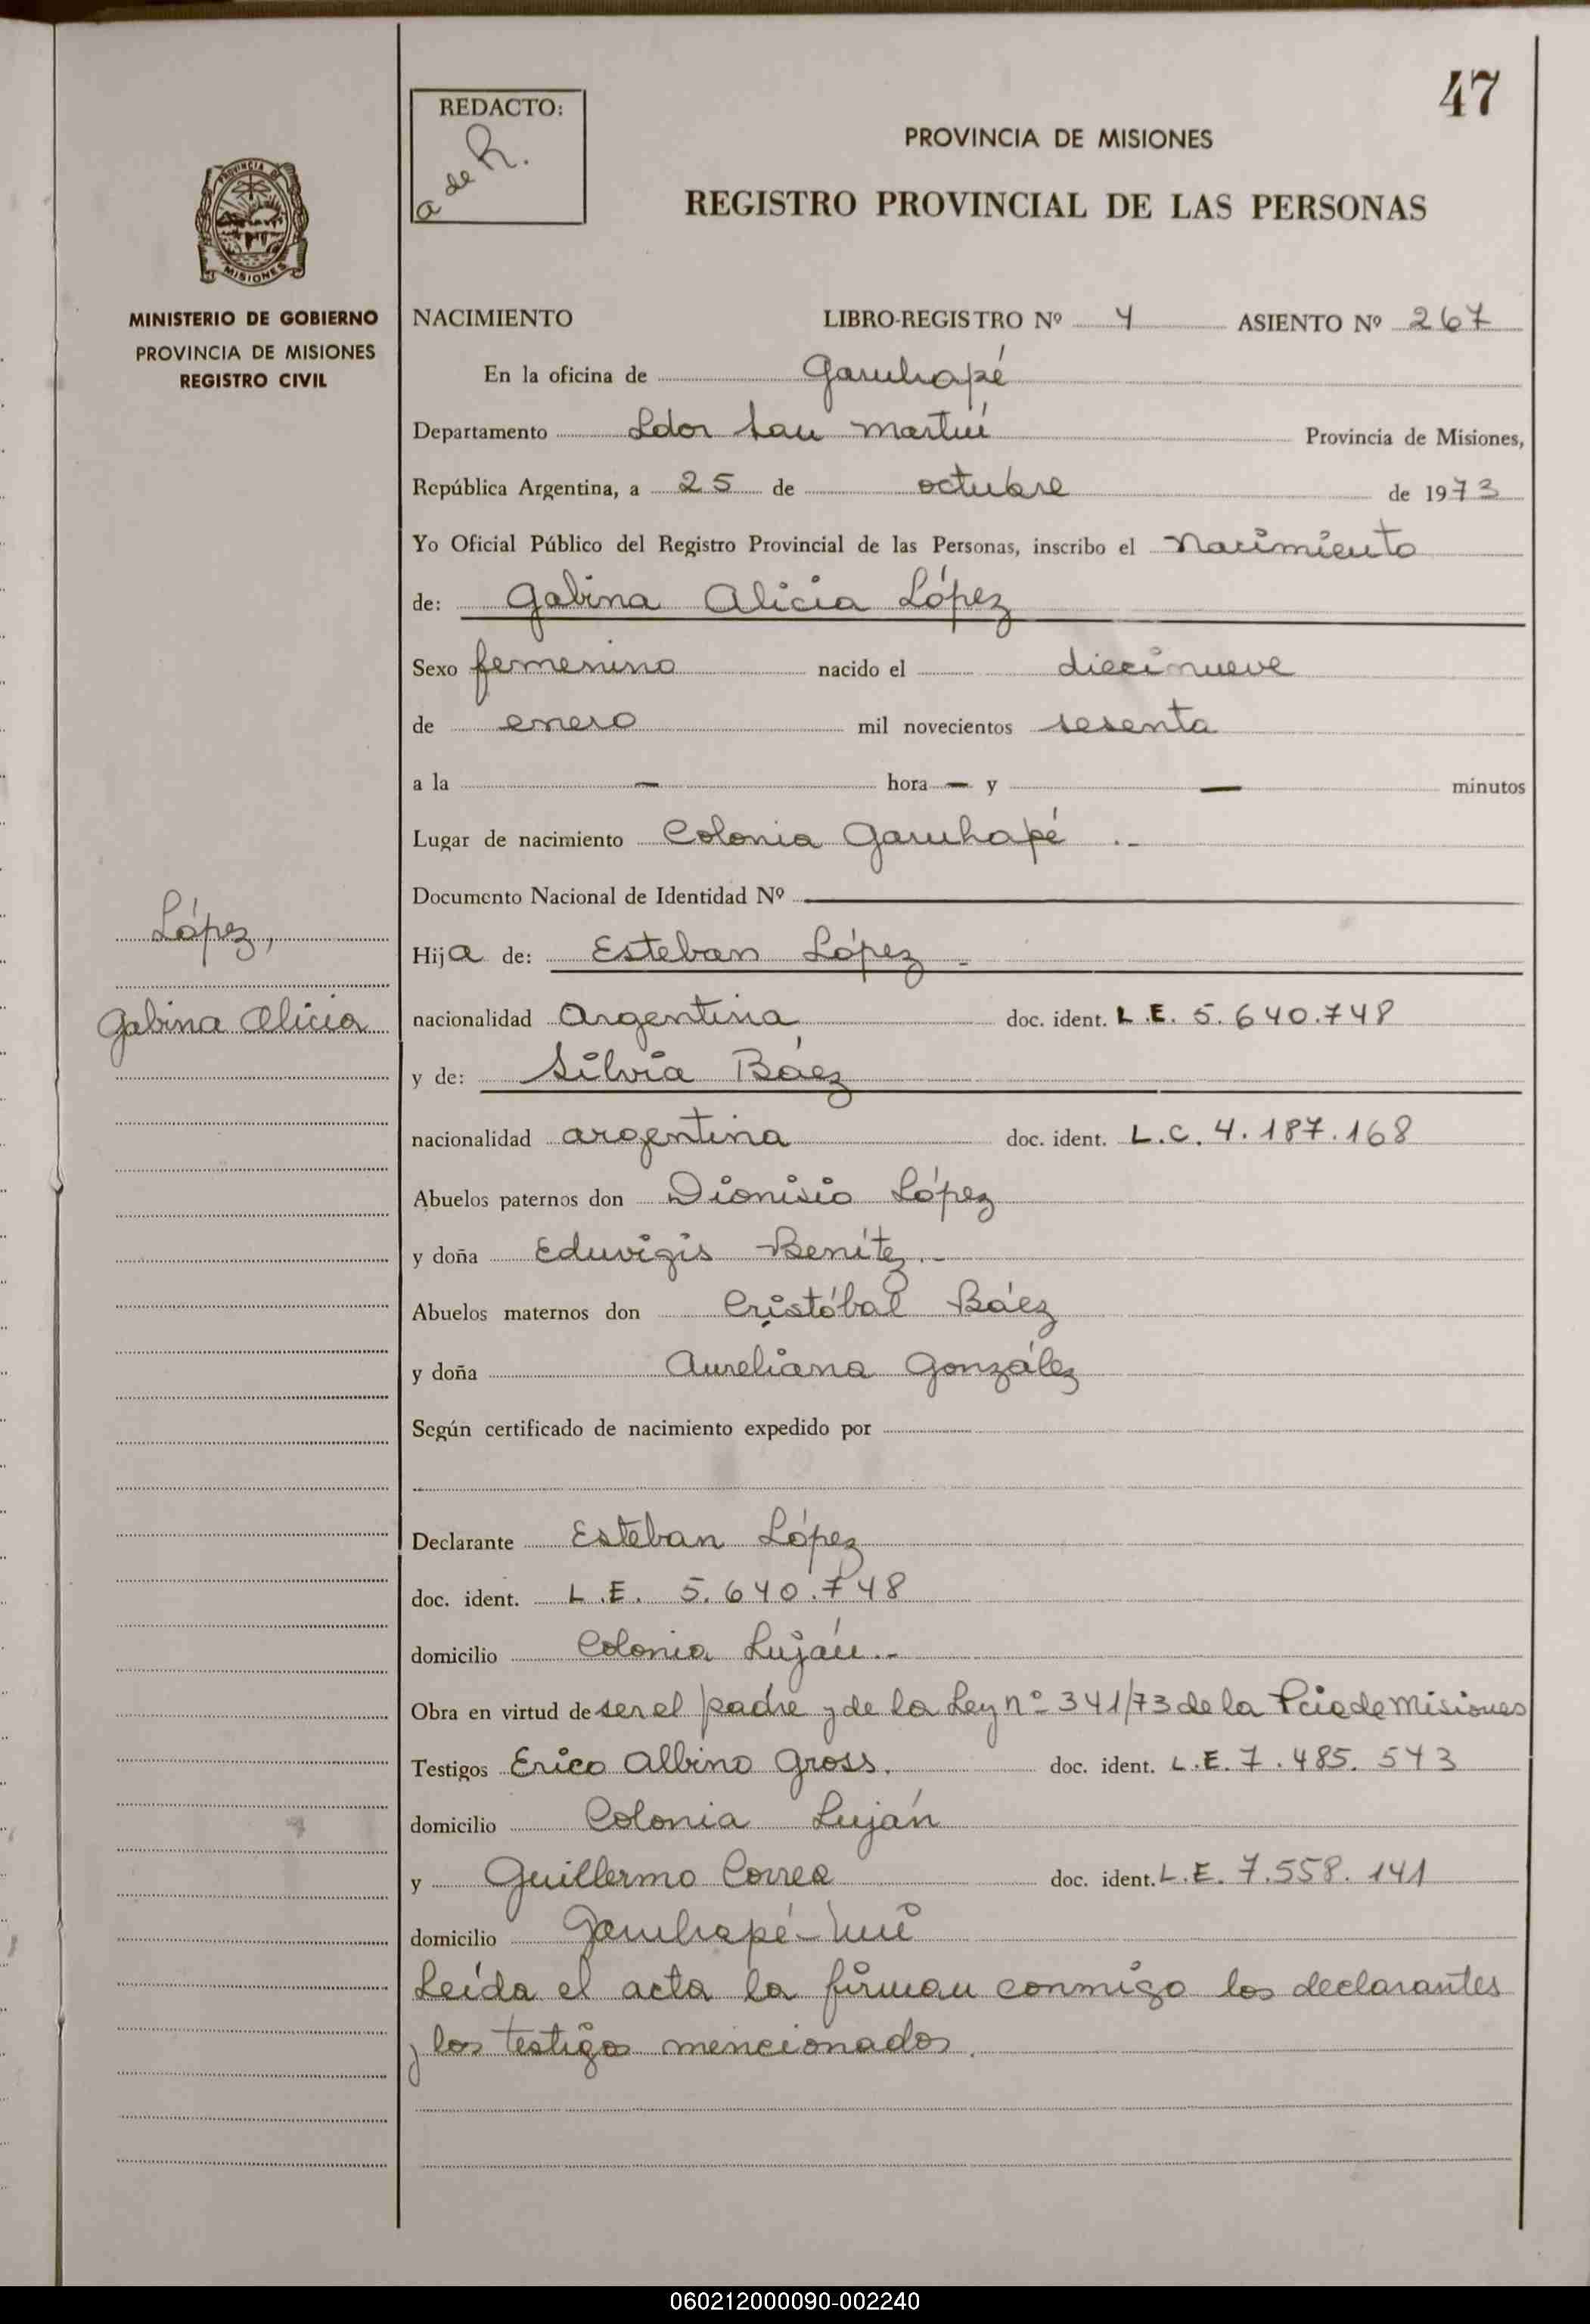 47
REDACTO:
a de R.
PROVINCIA DE MISIONES
REGISTRO PROVINCIAL DE LAS PERSONAS
PROVINCIA DE
MISIONES
MINISTERIO DE GOBIERNO
PROVINCIA DE MISIONES
REGISTRO CIVIL
NACIMIENTO LIBRO-REGISTRO Nº 4 ASIENTO Nº 267
En la oficina de Garuhapé
Departamento Ldor San Martín Provincia de Misiones,
República Argentina, a 25 de octubre de 1973
Yo Oficial Público del Registro Provincial de las Personas, inscribo el Nacimiento
de: Gabina Alicia López
Sexo femenino nacido el diecinueve
de enero mil novecientos sesenta
a la — hora — y — minutos
Lugar de nacimiento Colonia Garuhapé .-
Documento Nacional de Identidad Nº
López,
Gabina Alicia
Hija de: Esteban López -
nacionalidad Argentina doc. ident. L.E. 5.640.748
y de: Silvia Báez
nacionalidad argentina doc. ident. L.C. 4.187.168
Abuelos paternos don Dionisio López
y doña Eduvigis Benítez.-
Abuelos maternos don Cristóbal Báez
y doña Aureliana González
Según certificado de nacimiento expedido por
Declarante Esteban López
doc. ident. L.E. 5.640.748
domicilio Colonia Luján.-
Obra en virtud de ser el padre y de la Ley nº 341/73 de la Pcia de Misiones
Testigos Erico Albino Gross. doc. ident. L.E. 7.485.543
domicilio Colonia Luján
y Guillermo Correa doc. ident. L.E. 7.558.141
domicilio Garuhapé-Miní
Leída el acta la firman conmigo los declarantes
y los testigos mencionados.
060212000090-002240